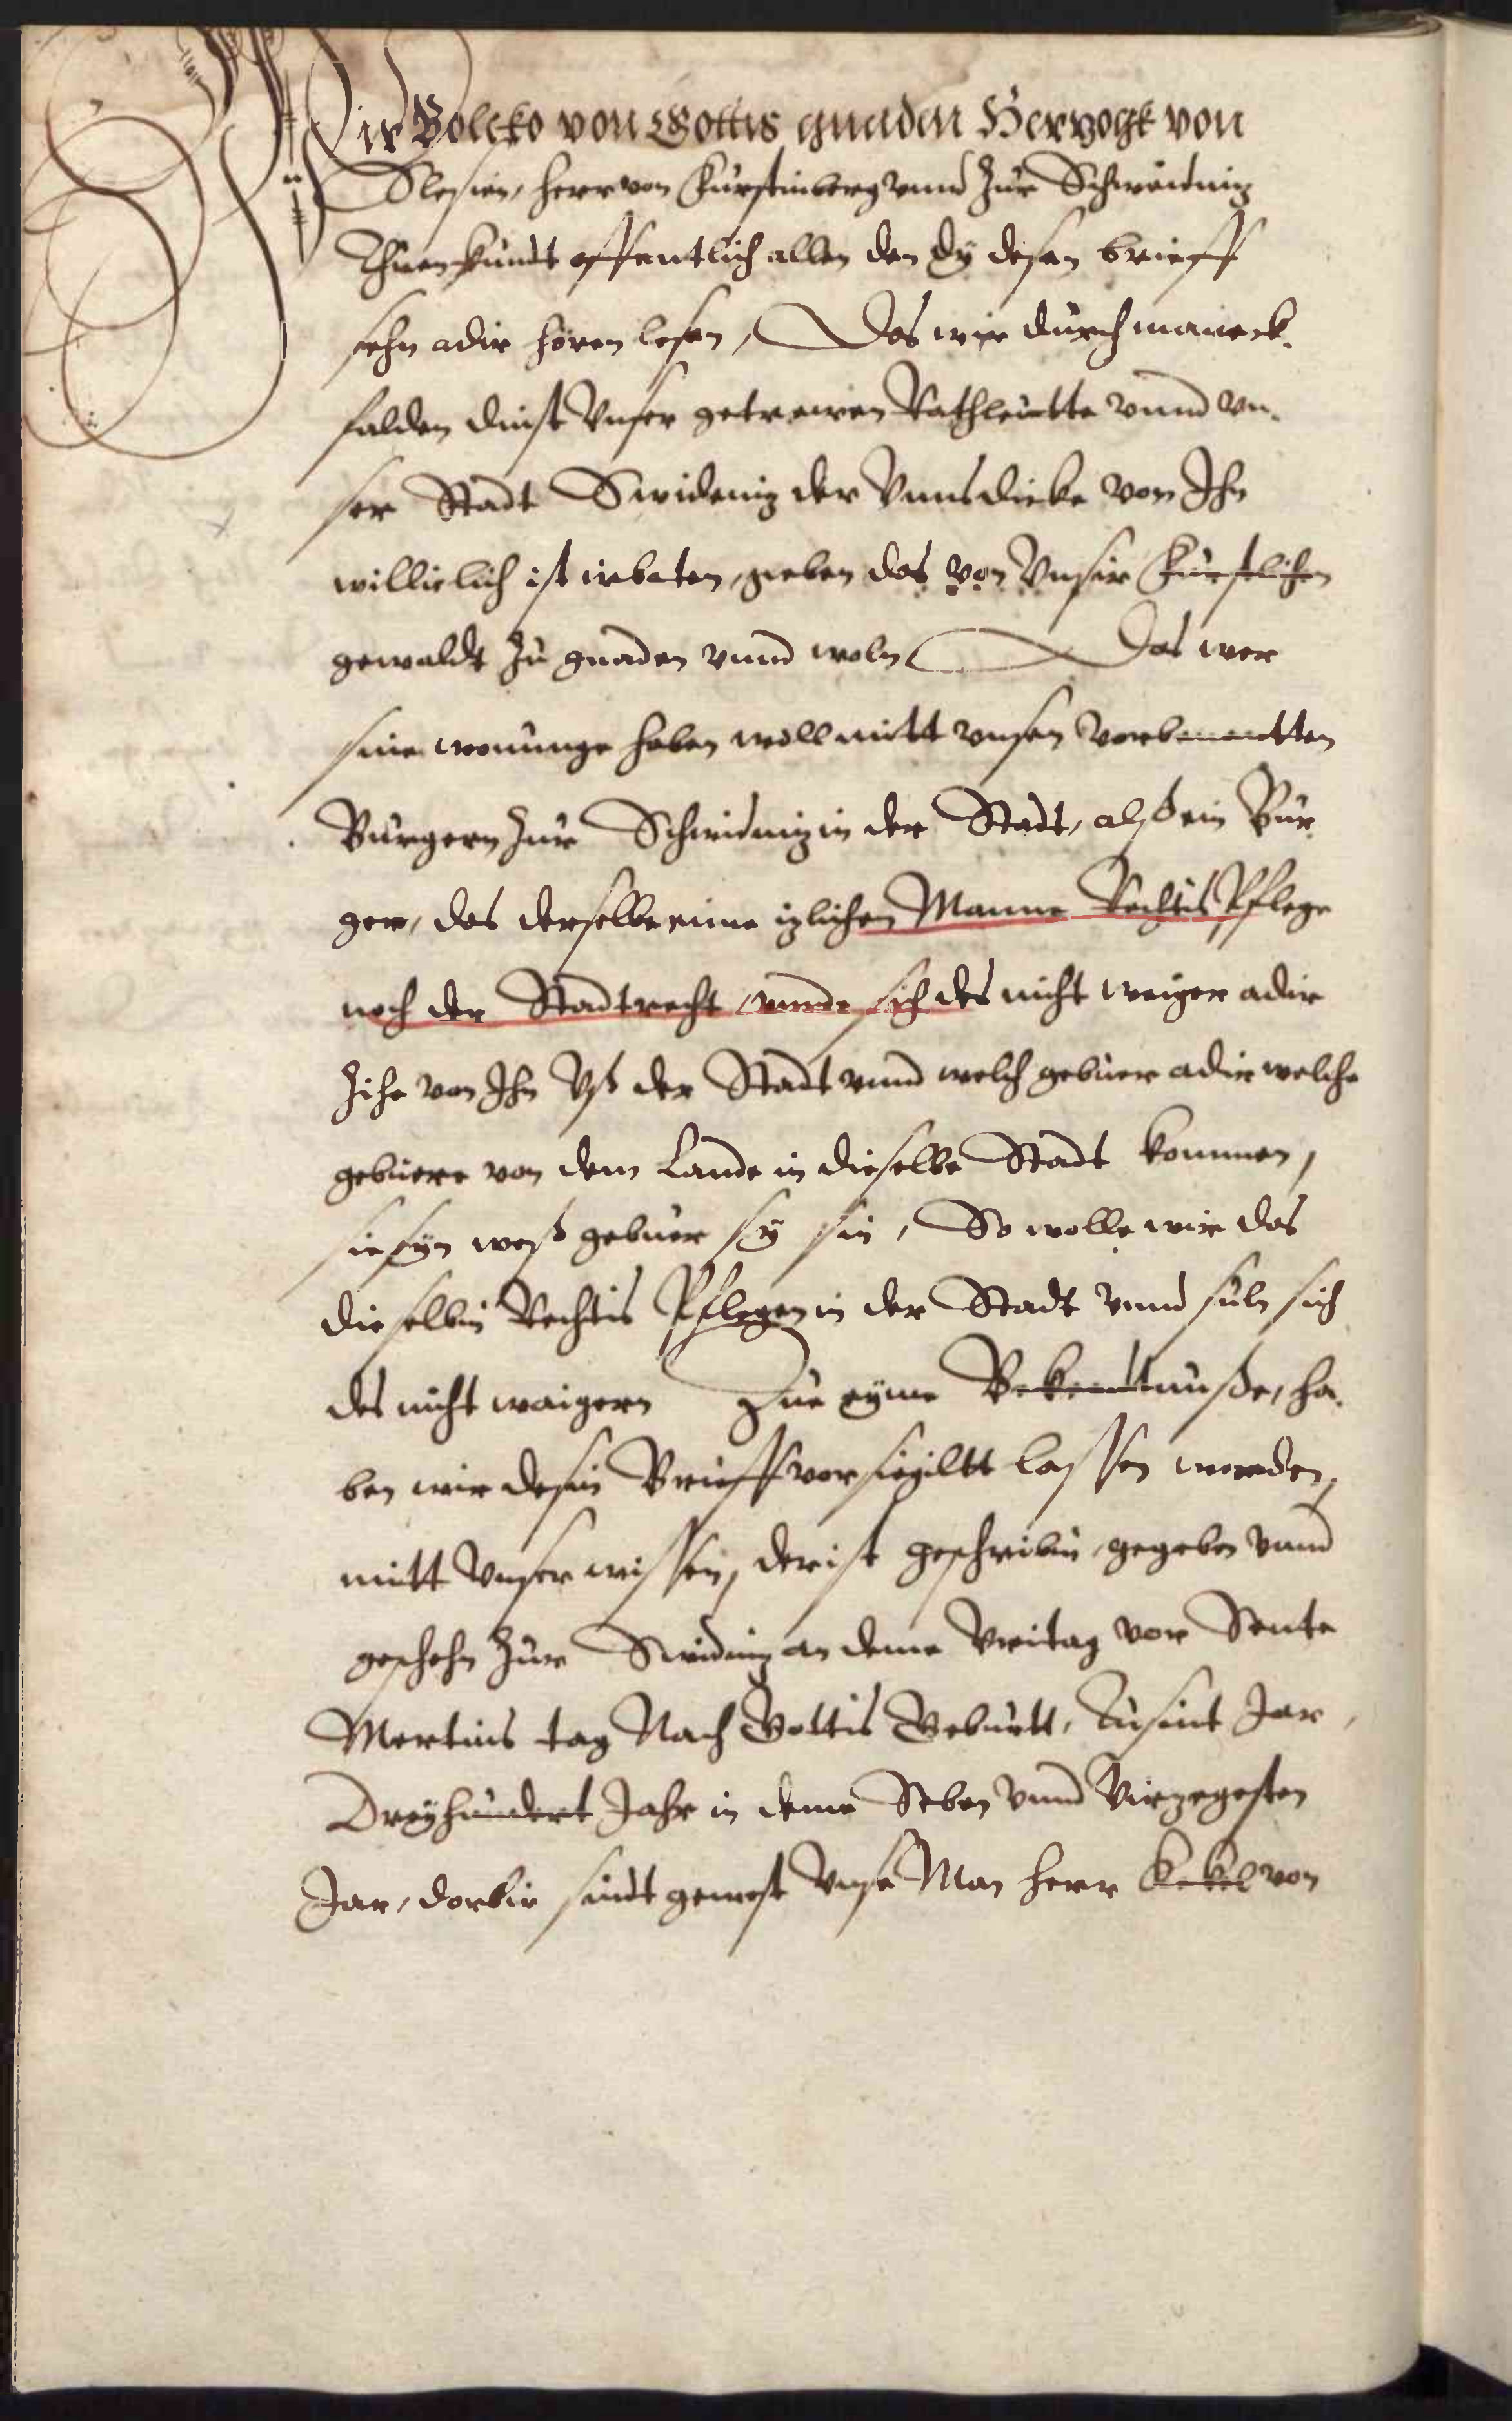 Wir Bolcko von Gottis gnaden Hertzogk von
Slesien, Herr von Fürstinberg vnnd zur Schweidnitz
Thuen kundt offentlich allen den dy desen brieff
sehn adir hören lesen, Das wir durch maneck-
falden dinst Vnser getrewen Rathleutte vnnd vn-
ser Stadt Swidnitz der Vnns dicke von Ihn
williclich ist irbaten, geben das von Vnsir Fürstlichen
gewaldt zu gnaden vnnd woln Das wer
sine wonunge haben woll mitt vnsen vorbenantten
Burgern zur Schwidnitz in der Stadt, alß ein Bur-
ger, das derselbe eime itzlichen Manne Rechtis Pflege
noch der Stadtrecht, vnnde sich des nicht weiger adir
zihe von Ihn vß der Stadt vnnd welch gebuer adir welche
gebuere von dem Lande in dieselbe Stadt kommen,
sie syn weß gebuer sy sin, So wolle wir das
dieselbin Rechtis Pflegen in der Stadt vnnd suln sich
des nicht waigern Zue eyme Bekenntnuße, ha-
ben wir desin Brieff vorsigiltt lassen werden,
mitt Vnser wissen, der ist geschribin, gegeben vnnd
geschehn zur Swidnitz an deme Vritag vor Sente
Mertins tag Nach Gottis Geburtt, Tusint Jar,
Dreyhundert Jahr in deme Seben vnnd Virzegesten
Jar, dorbie sindt gewest Vnse Man Herr Kekel von